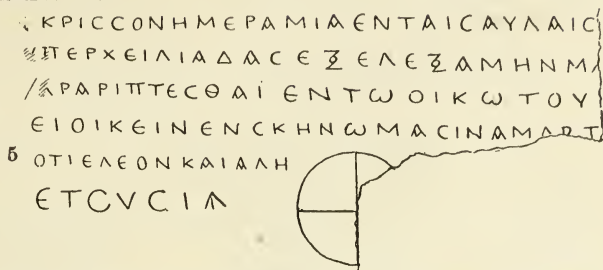 ΚΡΙϹϹΟΝΗΜΕΡΑΜΙΑΕΝΤΑΙϹΑΥΛΑΙϹ
ΥΠΕΡΧΕΙΛΙΑΔΑϹΕΞΕΛΕΞΑΜΗΝΜΑ
ΑΡΑΡΙΠΤΕϹΘΑΪΕΝΤΩΟΙΚΩΤΟΥ
ΕΙΟΙΚΕΙΝΕΝϹΚΗΝΩΜΑϹΙΝΑΜΑΡΤ
5 ΟΤΙΕΛΕΟΝΚΑΙΑΛΗ
ΕΤϹVϹΙΛ